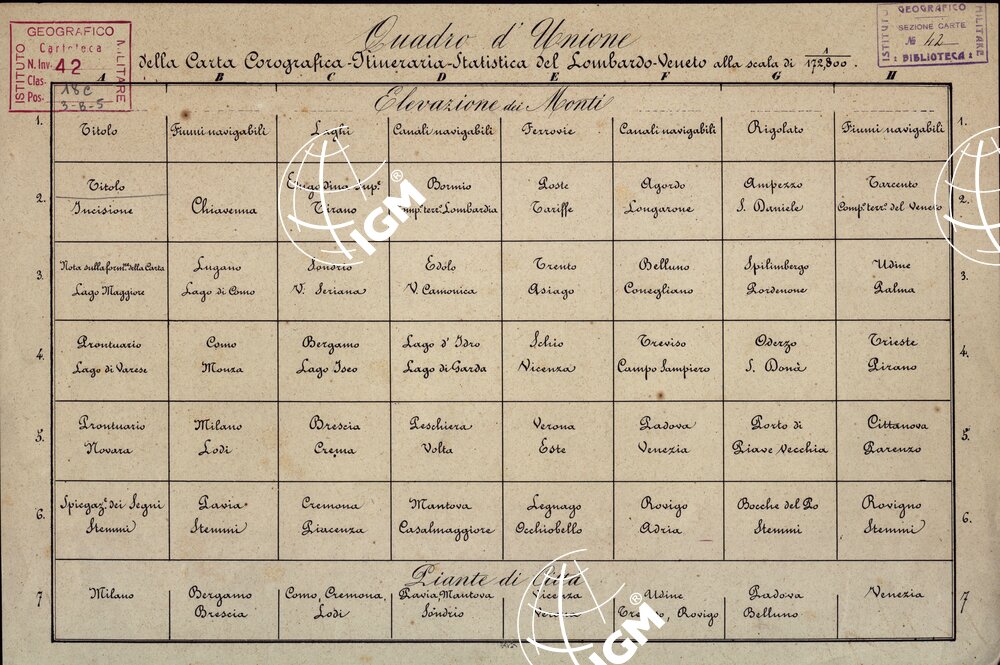 Quadro d'Unione
della Carta Corografica-Itineraria-Statistica del Lombardo-Veneto alla scala di 1/172,800.
ISTITUTO GEOGRAFICO MILITARE
Cartoteca
N. Inv. 42
Clas. 18C
Pos. 3-B-5
ISTITUTO GEOGRAFICO MILITARE
SEZIONE CARTE
№ 42
BIBLIOTECA
A B C D E F G H
Elevazione dei Monti
1. Titolo Fiumi navigabili Laghi Canali navigabili Ferrovie Canali navigabili Rigolato Fiumi navigabili 1.
2. Titolo Chiavenna Tirano Bormio Poste Agordo Ampezzo Tarcento 2.
Incisione Lombardia Tariffe Longarone S. Daniele Comp.° terr.° del Veneto
3. Nota sulla form.ne della Carta Lugano Sondrio Edolo Trento Belluno Spilimbergo Udine 3.
Lago Maggiore Lago di Como V. Seriana V. Camonica Asiago Conegliano Pordenone Palma
4. Prontuario Como Bergamo Lago d'Idro Schio Treviso Oderzo Trieste 4.
Lago di Varese Monza Lago Iseo Lago di Garda Vicenza Campo Sampiero S. Donà Pirano
5. Prontuario Milano Brescia Peschiera Verona Padova Porto di Cittanova 5.
Novara Lodi Crema Volta Este Venezia Piave Vecchia Parenzo
6. Spiegaz.e dei Segni Pavia Cremona Mantova Legnago Rovigo Bocche del Po Rovigno 6.
Stemmi Stemmi Piacenza Casalmaggiore Occhiobello Adria Stemmi Stemmi
Piante di Città
7 Milano Bergamo Como, Cremona, Pavia, Mantova Vicenza Udine Padova Venezia 7
Brescia Lodi Sondrio Verona Treviso, Rovigo Belluno
IGM®
IGM®
IGM